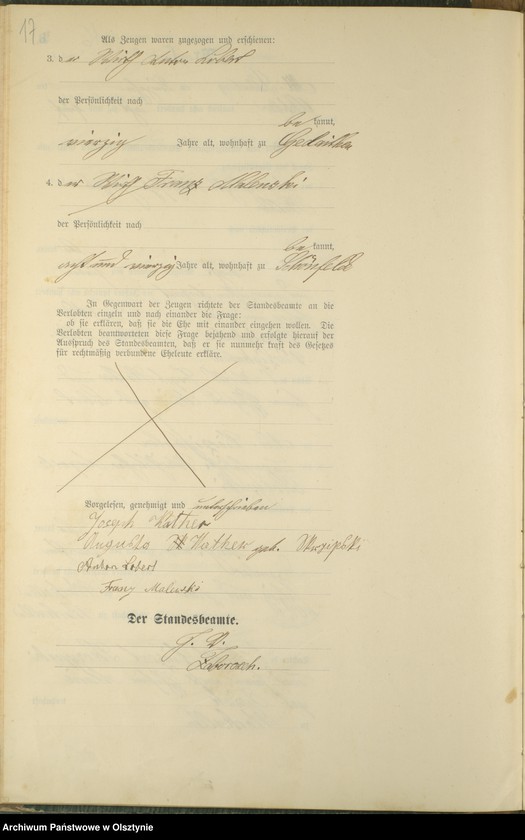 17
Als Zeugen waren zugezogen und erschienen:
3. der Wirth Anton Lobert
der Persönlichkeit nach
be kannt,
vierzig Jahre alt, wohnhaft zu Gedaithen
4. der Wirth Franz Malewski
der Persönlichkeit nach
be kannt,
acht und vierzig Jahre alt, wohnhaft zu Schönfelde
In Gegenwart der Zeugen richtete der Standesbeamte an die
Verlobten einzeln und nach einander die Frage:
ob sie erklären, daß sie die Ehe mit einander eingehen wollen. Die
Verlobten beantworteten diese Frage bejahend und erfolgte hierauf der
Ausspruch des Standesbeamten, daß er sie nunmehr kraft des Gesetzes
für rechtmäßig verbundene Eheleute erkläre.
Vorgelesen, genehmigt und unterschrieben
Joseph Kather
Augusta Kather geb. Skrzipski
Anton Lobert
Franz Malewski
Der Standesbeamte.
J. V.
Archiwum Państwowe w Olsztynie